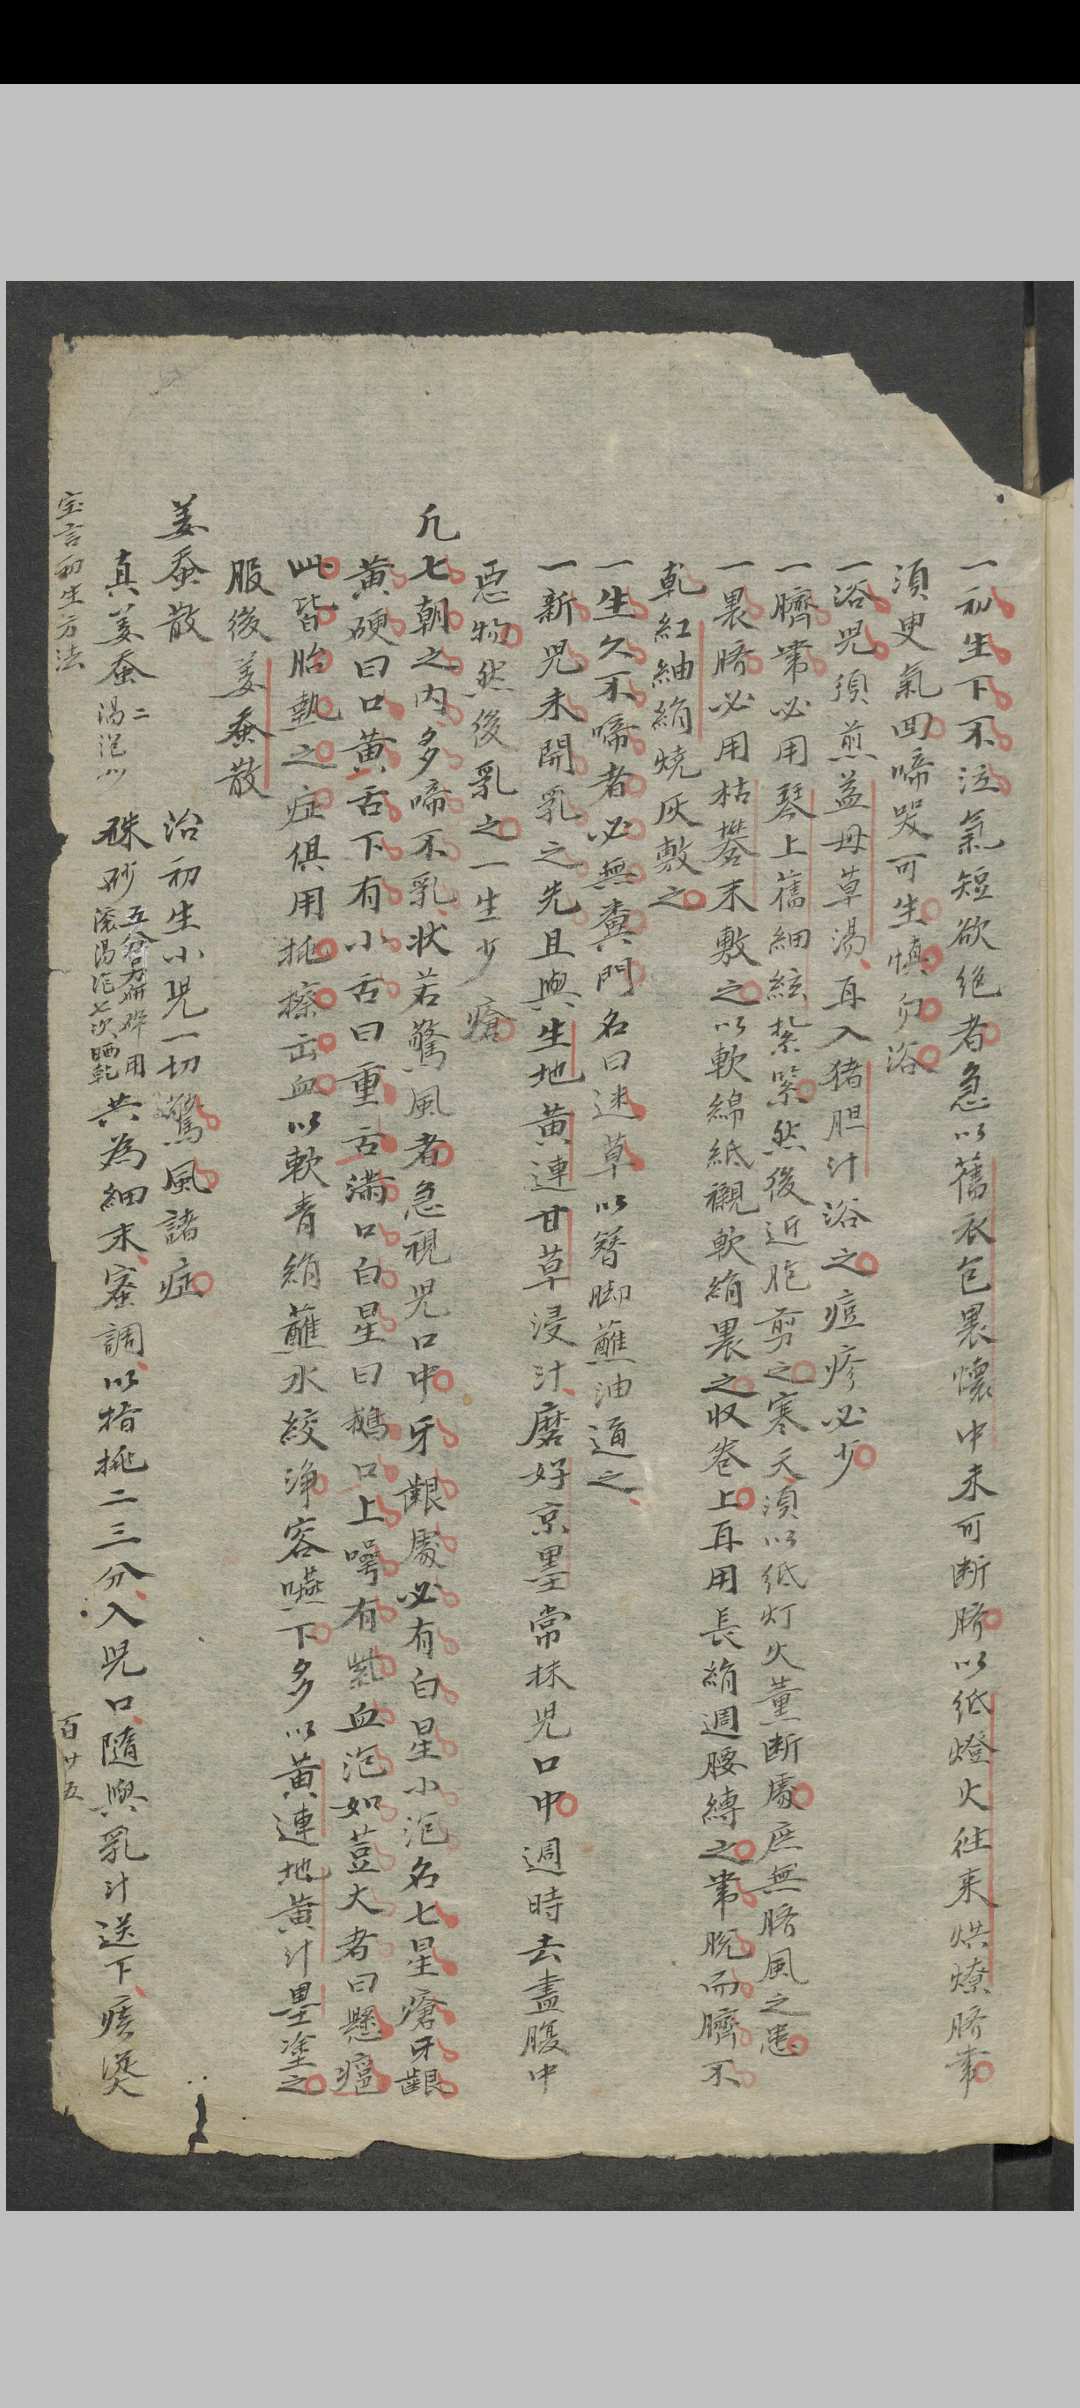 一初生下不泣氣短欲絕者急以舊衣包裹懷中未可断臍以紙燈火往来烘燎臍帶
須叟氣回啼哭可生慎勿浴
一浴児須煎益母草湯再入猪胆汁浴之痘疹必少
一臍帶必用琴上舊細絃紮緊然後近胞剪之寒天須以纸灯火薰断處庶無臍風之患
一裹臍必用枯礬末敷之以軟綿紙襯軟絹裹之収卷上再用長絹週腰縛之帶脫而臍不
乾紅紬絹燒灰敷之
一生久不啼者必無糞門名曰迷草以簪脚蘸油通之
一新児未開乳之先且與生地黄連甘草浸汁磨好京墨常抹児口中週時去盡腹中
惡物然後乳之一生少瘡
凢七朝之内多啼不乳状若驚風者急視児口中牙齦處必有白星小泡名七星瘡牙齦
黄硬曰口黄舌下有小舌曰重舌滿口白星曰鵝口上咢有紫血泡如荳大者曰懸癰
此皆胎熱之症俱用挑擦出血以軟青絹蘸水絞净容嚥下多以黄連地黄汁墨塗之
服後姜蚕散
姜蚕散 治初生小児一切驚風諸症
真姜蚕二湯泡 硃砂五分另研碎用滚湯泡七次晒乾共為細末蜜調以指挑二三分入児口隨與乳汁送下痰
宝言初生方法 百廿五